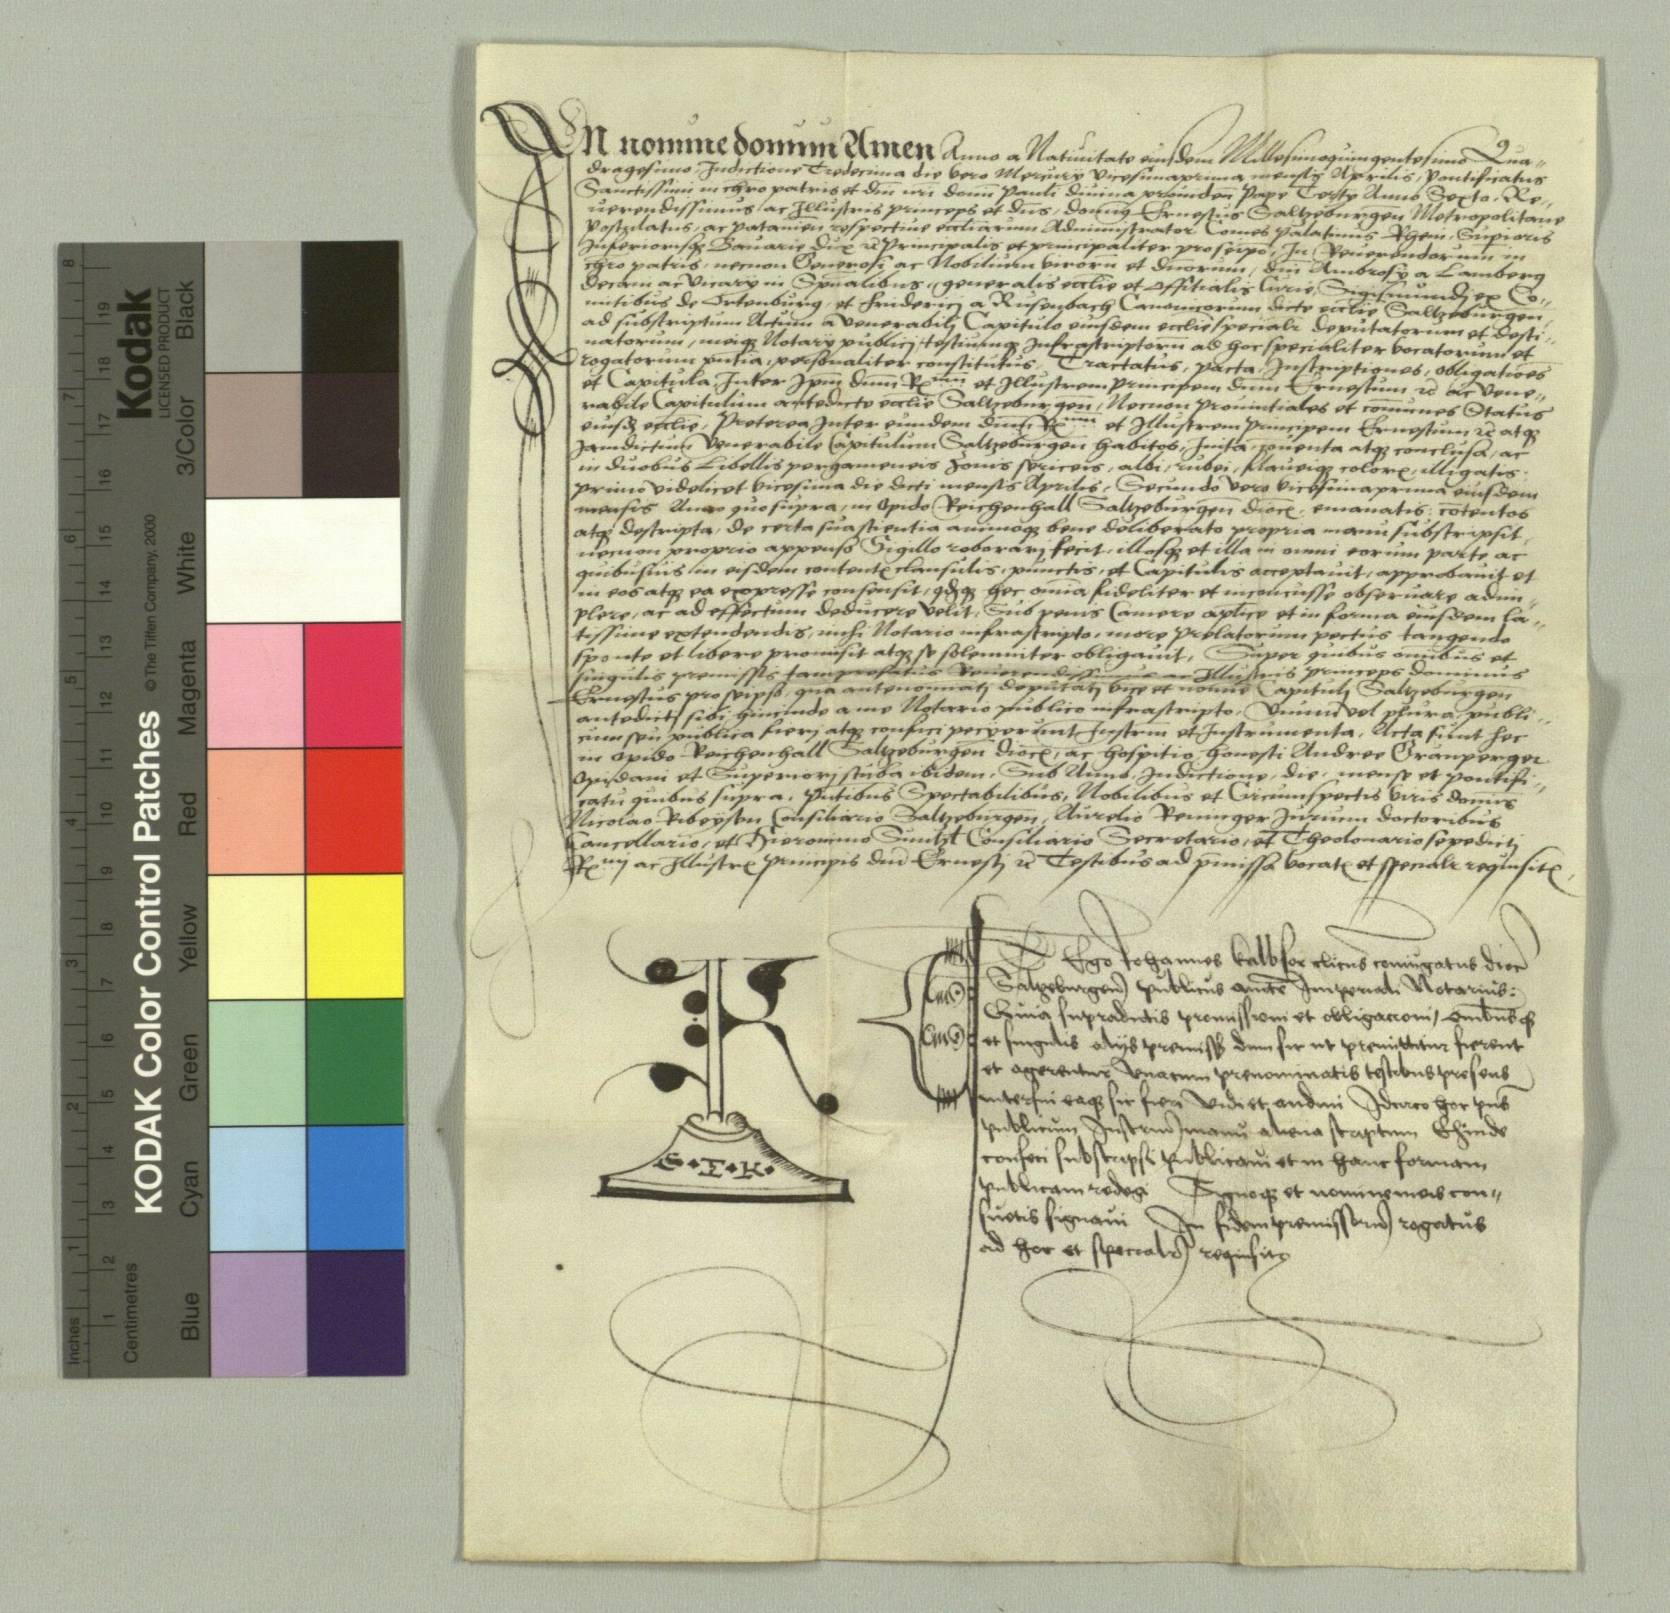 KODAK Color Control Patches
© The Tiffen Company, 2000
Kodak
LICENSED PRODUCT
Inches
1 2 3 4 5 6 7 8
Centimetres
1 2 3 4 5 6 7 8 9 10 11 12 13 14 15 16 17 18 19
Blue Cyan Green Yellow Red Magenta White 3/Color Black
IN nomine domini Amen Anno a Natiuitate eiusdem Millesimoquingentesimo Qua-
dragesimo, Indictione Tredecima die vero Mercurij vicesimaprima mensis Aprilis, Pontificatus
Sanctissimi in chro patris et dni nri domi Pauli diuina prouiden Pape Tertij Anno Sexto, Re-
uerendissimus ac Illustris princeps et dns, domi Ernestus Saltzeburgen Metropolitane
Postulatus, ac patauien respectiue eccliarum Administrator Comes palatinus Rheni, Supioris
Inferiorisq Bauarie Dux Principalis et principaliter pro seipo, In Reuerendorum in
chro patris, necnon Generosi ac Nobilium virorum et dnorum, dni Ambrosij a Lamberg
Decani ac Vicarij in Spualibus, generalis ecclie et Officialis Curie, Sigismundj ex Co-
mitibus de Ortenburg, et Friderici a Canonicorum dicte ecclie Saltzeburgen,
ad subscriptum Actum a venerabili Capitulo eiusdem ecclie specialr deputatorum et desti-
natorum, meiq Notarij publicj, testiumq Infrascriptoru ad hoc specialiter vocatorum et
rogatorum pntia, personaliter constitutus, Tractatus, pacta, Inscriptiones, obligatioes
et Capitula, Inter Ipm dnm R et Illustrem Principem dnm Ernestum ac Vene-
rabile Capitulum antedicte ecclie Saltzeburgen, Necnon prouintiales et comunes Status
eiusd ecclie, Preterea Inter eundem dnm R et Illustrem Principem Ernestum atq
Jamdictum Venerabile Capitulum Saltzeburgen habitos, Inita, conuenta atq conclusa, ac
in duobus Libellis pergameneis Zonis sericeis, albi, rubei, flaueiq colore, illigatis,
primo videlicet vicesima die dicti mensis Aprilis, Secundo vero vicesimaprima eiusdem
mensis Anno quo supra, in Opido Reichenhall Saltzeburgen dioc, emanatis, cotentos
atq descripta, de certa sua scientia animoq bene deliberato propria manu subscripsit,
necnon proprio appenso Sigillo roborarj fecit, illosq et illa in omni eorum parte ac
quibusuis in eisdem content clausulis, punctis, et Capitulis acceptauit, approbauit et
in eos atq ea expresse consensit, qdq hec omia fideliter et inconcusse obseruare adim-
plere, ac ad effectum deducere velit, Sub penis Camere aplice et in forma eiusdem la-
tissime extendendis, mihi Notario infrascripto, more prelatorum pectus tangendo
sponte et libere promisit atq se solemniter obligauit, Super quibus omibus et
singulis premissis tam prefatus Reuerendissimus ac Illustris princeps dominus
Ernestus pro seipso, qua antenominatj deputatj vice et nomine Capitulj Saltzeburgen
antedictj sibi hincinde a me Notario publico infrascripto, vnum vel plura, publi-
cum seu publica fierj atq confici pecierunt Instrm et Instrumenta, Acta sunt hec
in Opido Reichenhall Saltzeburgen dioc, ac hospitio, honesti Andree Granperger
Opidani et Superiorj stuba ibidem, Sub Anno, Indictione, die, mense et pontifi-
catu quibus supra, Pntibus Spectabilibus, Nobilibus et Circumspectis viris dominis
Nicolao Ribeysen Consiliario Saltzeburgen, Aurelio Reninger Jurium doctoribus
Cancellario, et Hieronimo Consiliario Secretario, et Theolonario sepedictj
R ac Illustr principis dni Ernestj Testibus ad pmissa vocat et specialr requisit
S·I·K·
Et Ego Johannes kalbsor clicus coniugatus dioc
Saltzeburgen publicus aucte Imperiali Notarius:
Quia supradictis promissioni et obligacioni, omibusq
et singulis alijs premiss dum sic ut premittitur fierent
et agerentur vnacum prenominatis testibus presens
interfui eaq sic fieri vidi et audiui Idcirco hoc pns
publicum Instrm manu aliena scriptum Exinde
confeci subscripsi publicaui et in hanc formam
publicam redegi Signoq et nomine meis con-
suetis signaui In fidem premissoru rogatus
ad hoc et specialr requisit